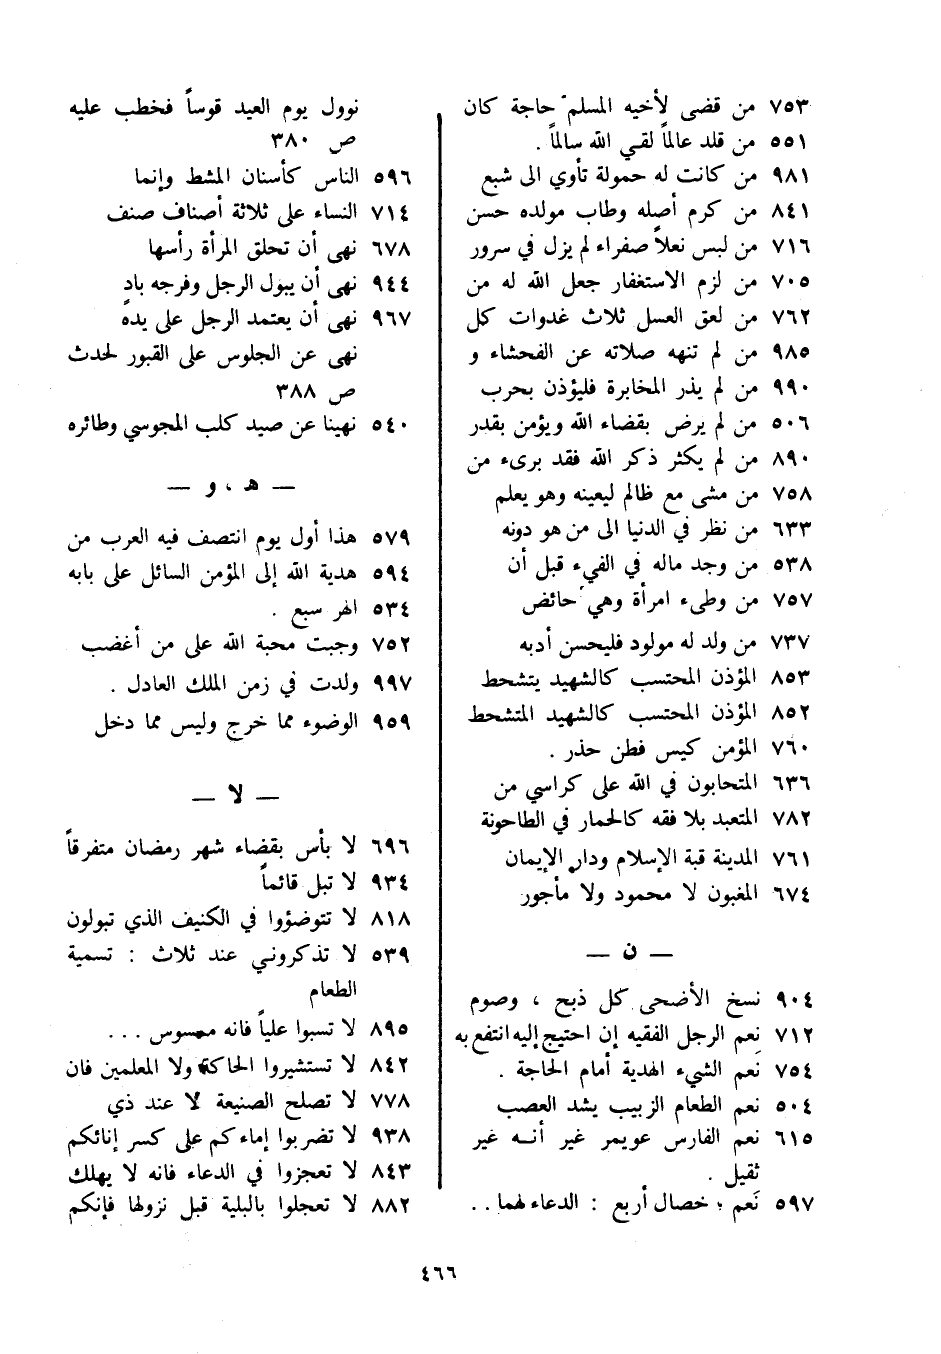 ٧٥٣ من قضى لأخيه المسلم حاجة كان
٥٥١ من قلد عالماً لقي الله سالماً .
٩٨١ من كانت له حمولة تأوي الى شبع
٨٤١ من كرم أصله وطاب مولده حسن
٧١٦ من لبس نعلاً صفراء لم يزل في سرور
٧٠٥ من لزم الاستغفار جعل الله له من
٧٦٢ من لعق العسل ثلاث غدوات كل
٩٨٥ من لم تنهه صلاته عن الفحشاء و
٩٩٠ من لم يذر المخابرة فليؤذن بحرب
٥٠٦ من لم يرض بقضاء الله ويؤمن بقدر
٨٩٠ من لم يكثر ذكر الله فقد برىء من
٧٥٨ من مشى مع ظالم ليعينه وهو يعلم
٦٣٣ من نظر في الدنيا الى من هو دونه
٥٣٨ من وجد ماله في الفيء قبل أن
٧٥٧ من وطىء امرأة وهي حائض
٧٣٧ من ولد له مولود فليحسن أدبه
٨٥٣ المؤذن المحتسب كالشهيد يتشحط
٨٥٢ المؤذن المحتسب كالشهيد المتشحط
٧٦٠ المؤمن كيس فطن حذر .
٦٣٦ المتحابون في الله على كراسي من
٧٨٢ المتعبد بلا فقه كالحمار في الطاحونة
٧٦١ المدينة قبة الإسلام ودار الإيمان
٦٧٤ المغبون لا محمود ولا مأجور
— ن —
٩٠٤ نسخ الأضحى كل ذبح ، وصوم
٧١٢ نِعم الرجل الفقيه إن احتيج إليه انتفع به
٧٥٤ نَعم الشيء الهدية أمام الحاجة .
٥٠٤ نعم الطعام الزبيب يشد العصب
٦١٥ نعم الفارس عويمر غير أنه غير
ثقيل .
٥٩٧ نَعم ، خصال أربع : الدعاء لهما . .
نوول يوم العيد قوساً فخطب عليه
ص ٣٨٠
٥٩٦ الناس كأسنان المشط وإنما
٧١٤ النساء على ثلاثة أصناف صنف
٦٧٨ نهى أن تحلق المرأة رأسها
٩٤٤ نهى أن يبول الرجل وفرجه بادٍ
٩٦٧ نهى أن يعتمد الرجل على يده
نهى عن الجلوس على القبور لحدث
ص ٣٨٨
٥٤٠ نهينا عن صيد كلب المجوسي وطائره
— هـ ، و —
٥٧٩ هذا أول يوم انتصف فيه العرب من
٥٩٤ هدية الله إلى المؤمن السائل على بابه
٥٣٤ الهر سبع .
٧٥٢ وجبت محبة الله على من أغضب
٩٩٧ ولدت في زمن الملك العادل .
٩٥٩ الوضوء مما خرج وليس مما دخل
— لا —
٦٩٦ لا بأس بقضاء شهر رمضان متفرقاً
٩٣٤ لا تبل قائماً
٨١٨ لا تتوضؤوا في الكنيف الذي تبولون
٥٣٩ لا تذكروني عند ثلاث : تسمية
الطعام
٨٩٥ لا تسبوا علياً فانه ممسوس . . .
٨٤٢ لا تستشيروا الحاكة ولا المعلمين فان
٧٧٨ لا تصلح الصنيعة لا عند ذي
٩٣٨ لا تضربوا إماءكم على كسر إنائكم
٨٤٣ لا تعجزوا في الدعاء فانه لا يهلك
٨٨٢ لا تعجلوا بالبلية قبل نزولها فإنكم
٤٦٦